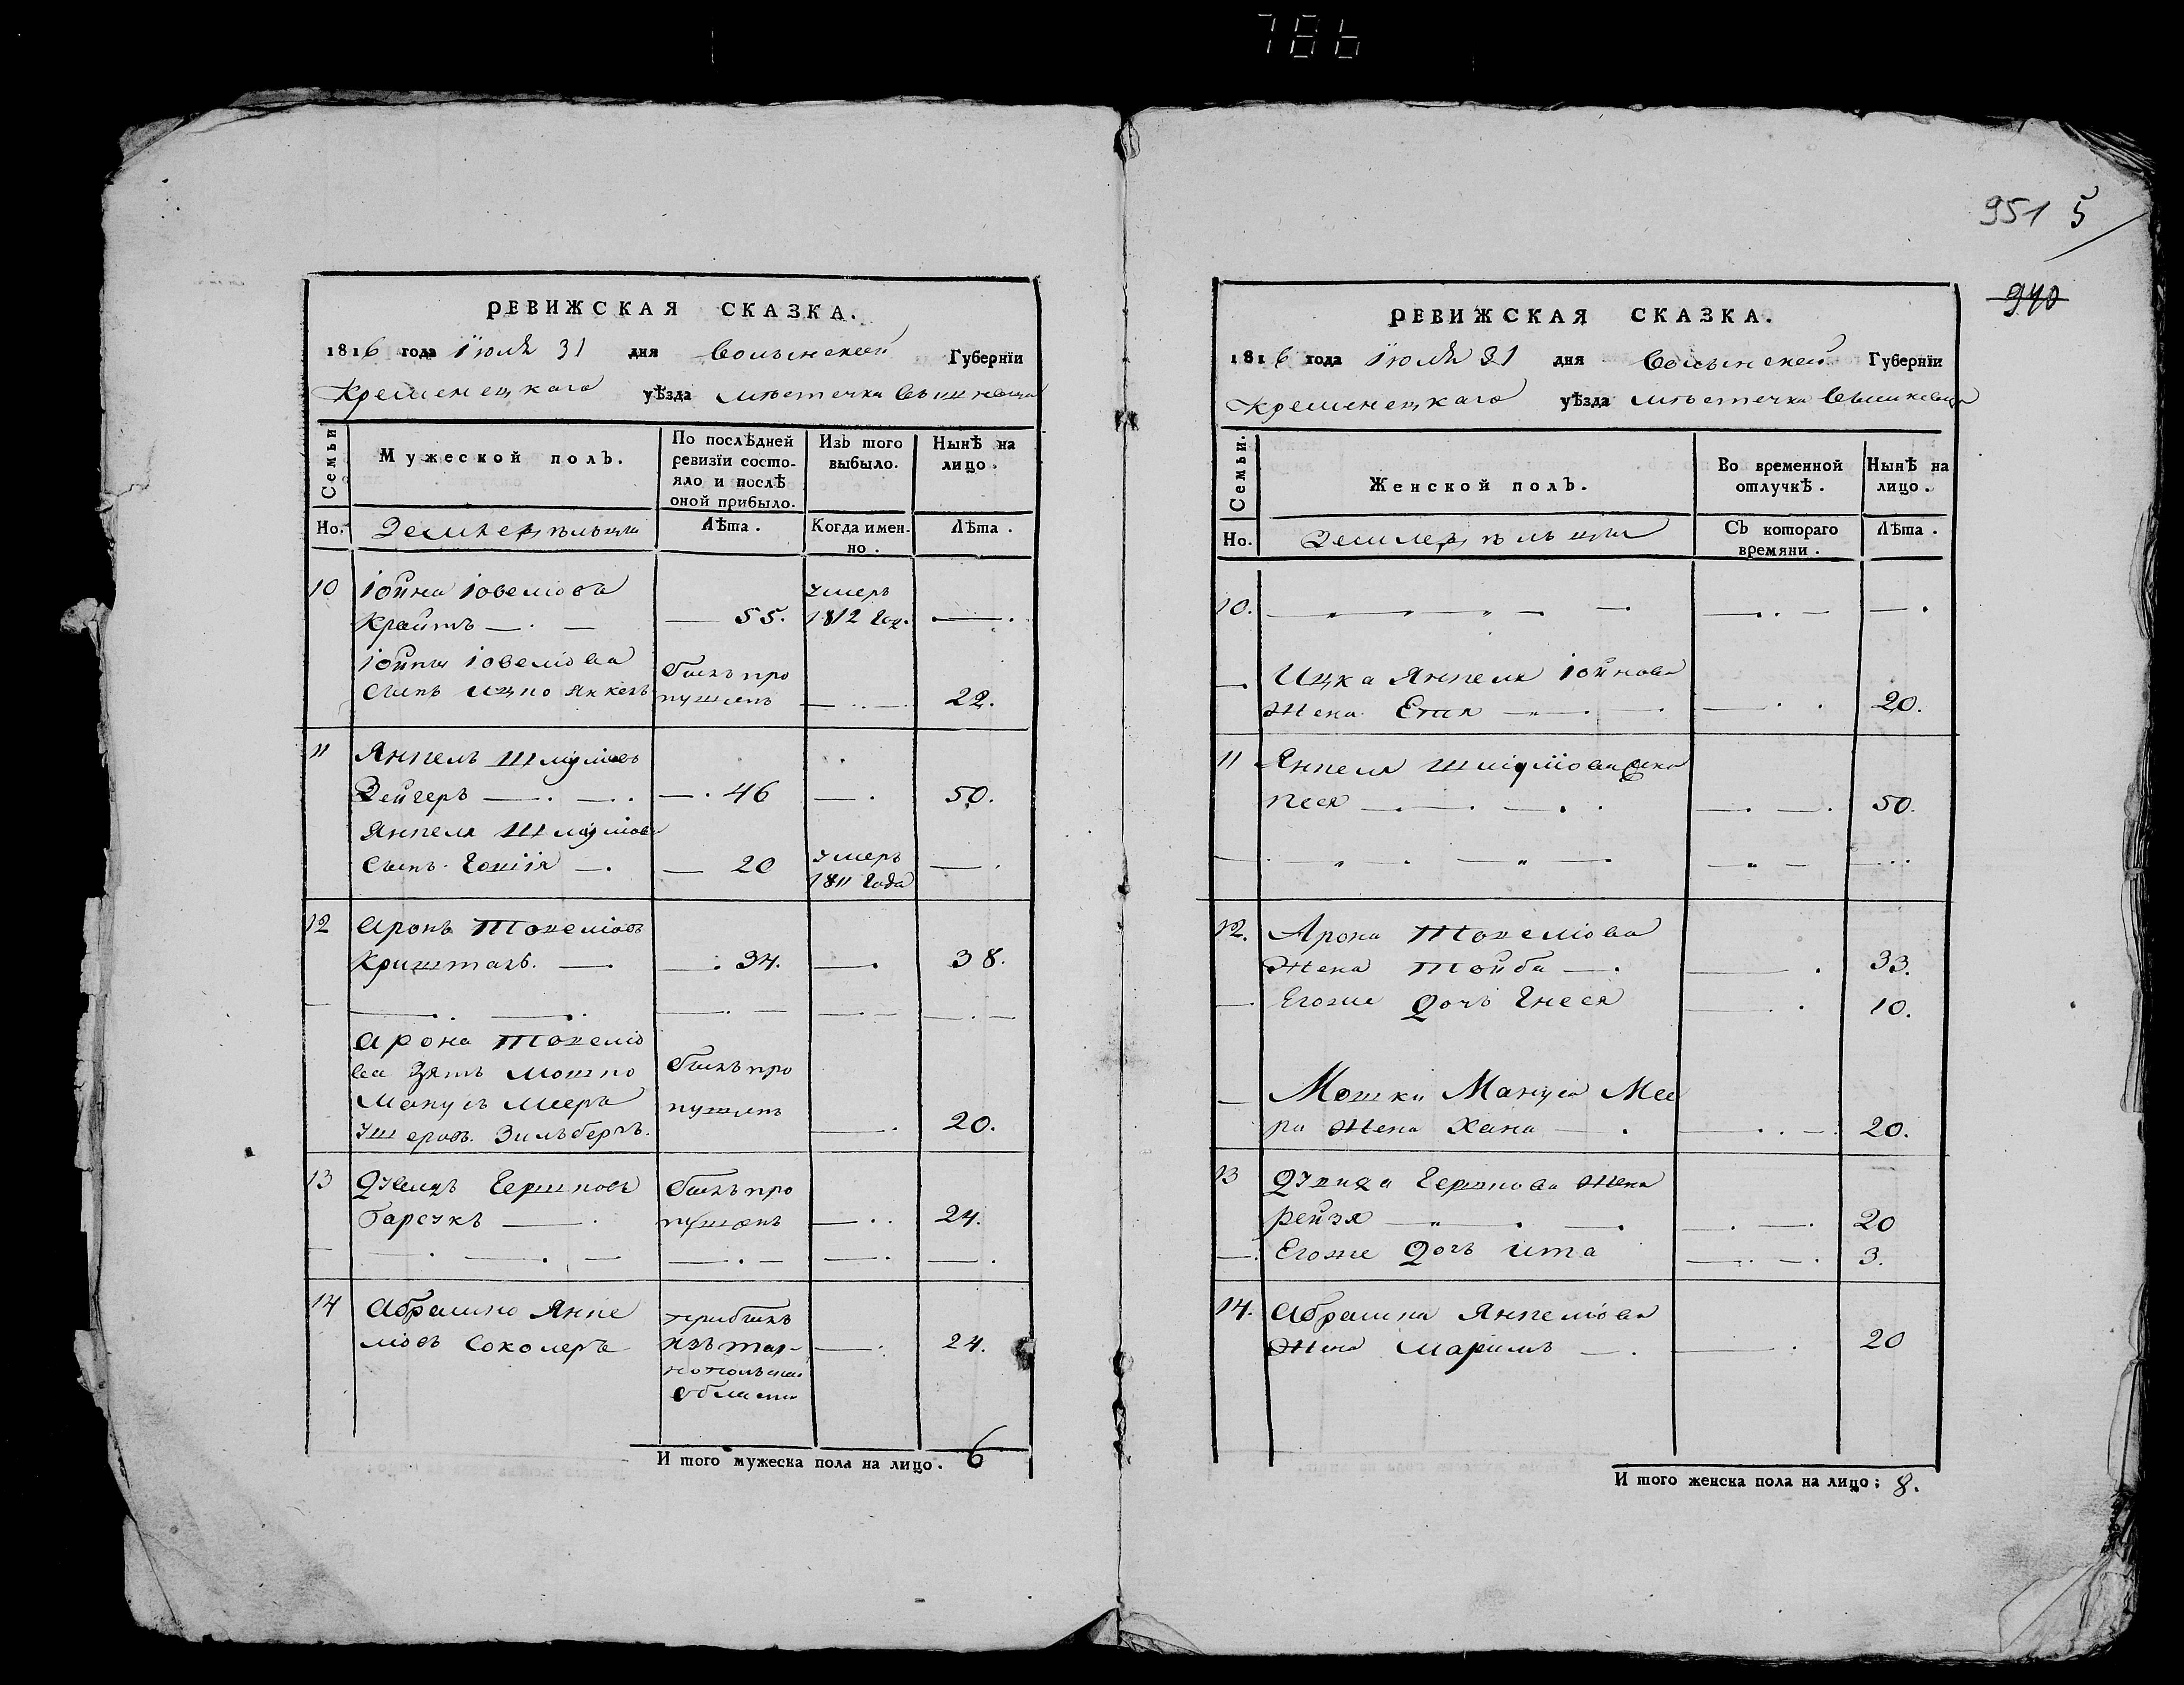 786
951 5
940
РЕВИЖСКАЯ СКАЗКА.
1816 года Iюля 31 дня Волынской Губернїи
Кременецкаго уѣзда мѣстечка Вышневца
Семьи
Мужеской полЪ.
По послѣдней ревизїи состояло и послѣ оной прибыло.
ИзЬ того выбыло.
Нынѣ на лицо.
Но.
Земледѣльцы
Лѣта.
Когда именно.
Лѣта.
10 Iойна Iовелiова умеръ
Крайтъ — 55. 1812 год. —
Iойны Iовелiова былъ про
сынъ Ицко Янкель пущенъ — 22.
11 Янкель Шлiомiовъ
Зейгеръ — 46 — 50.
Янкеля Шлiомiова умеръ
сынъ Гошiя — 20 1811 года —
12 Аронъ Тоделiовъ
Кришталь. — 34. — 38.
Арона Тоделiо
ва зять Мошко былъ про
Манусъ Мееръ пущенъ
Ушеровъ. Зильбергъ. — 20.
13 Гершковъ былъ про
Барсукъ — пущенъ — 24.
14 Абрамко Янке прибылъ
лiовъ изъ Тар- — 24.
нопольской
области
И того мужеска пола на лицо. 6
РЕВИЖСКАЯ СКАЗКА.
1816 года Iюля 31 дня Волынской Губернїи
Кременецкаго уѣзда мѣстечка Вышневца
Семьи.
Женской полЪ.
Во временной отлучкѣ.
Нынѣ на лицо.
Но.
Земледѣльцы
СЪ котораго времяни.
Лѣта.
10. —
— Ицка Янкеля Iойнова
жена Етля — 20.
11 Янкеля Шлiомiова жена
Песя — 50.
12. Арона Тоделiова
жена Тойба — 33.
— Егоже дочь Гнеся 10.
— Мошки Мануса Мее
ра жена Хана — 20.
13 Гершкова жена
Рейзя — 20
— Егоже дочь Ита 3.
14. Абрамка Янкелiова
жена Маримъ — 20
И того женска пола на лицо; 8.